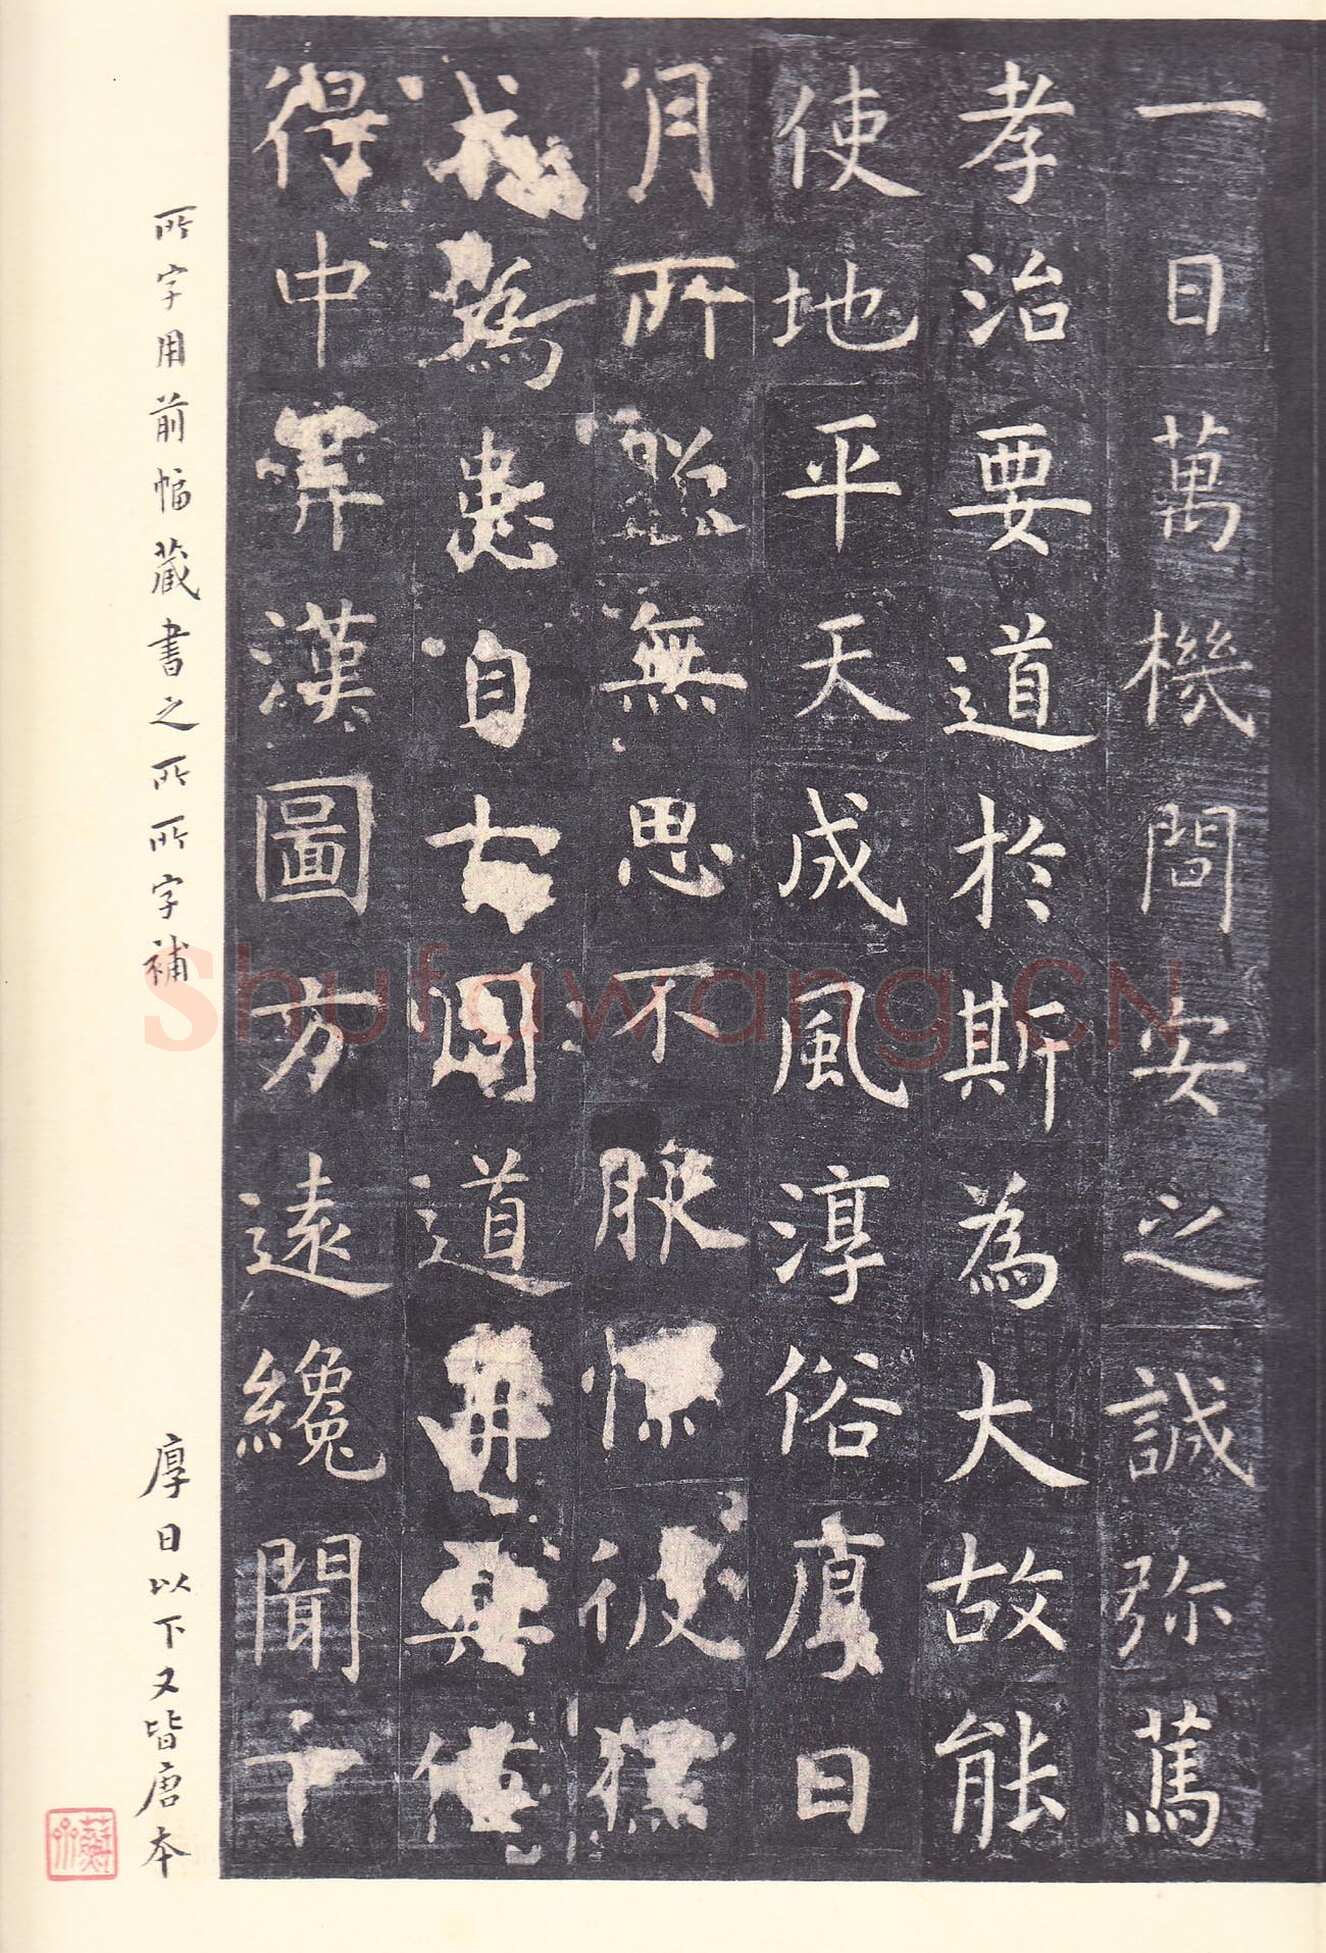 一日萬機問安之誠弥篤
孝治要道於斯為大故能
使地平天成風淳俗厚日
月所照無思不服懍彼獯
戎為患自古周道再興僅
得中筭漢圖方遠纔聞下
所字用前幅藏書之所所字補
厚日以下又皆唐本
Shufawang.CN